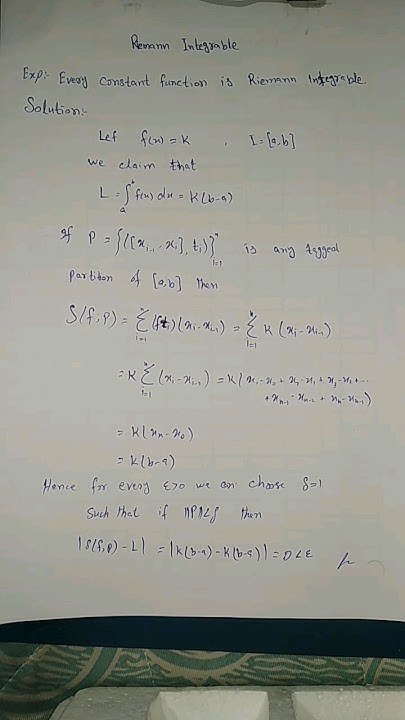 Riemann Integrable
Exp:- Every constant function is Riemann Integrable
Solution:-
Let f(x) = K , I = [a,b]
we claim that
L = ∫_a^b f(x) dx = K(b-a)
If P = {([x_{i-1}, x_i], t_i)}_{i=1}^n is any tagged
partition of [a,b] then
S(f,P) = Σ_{i=1}^n f(t_i)(x_i - x_{i-1}) = Σ_{i=1}^n K(x_i - x_{i-1})
= K Σ_{i=1}^n (x_i - x_{i-1}) = K(x_1 - x_0 + x_2 - x_1 + x_3 - x_2 + ...
+ x_{n-1} - x_{n-2} + x_n - x_{n-1})
= K(x_n - x_0)
= K(b-a)
Hence for every ε>0 we can choose δ=1
such that if ||P||<δ then
|S(f,P) - L| = |K(b-a) - K(b-a)| = 0 < ε